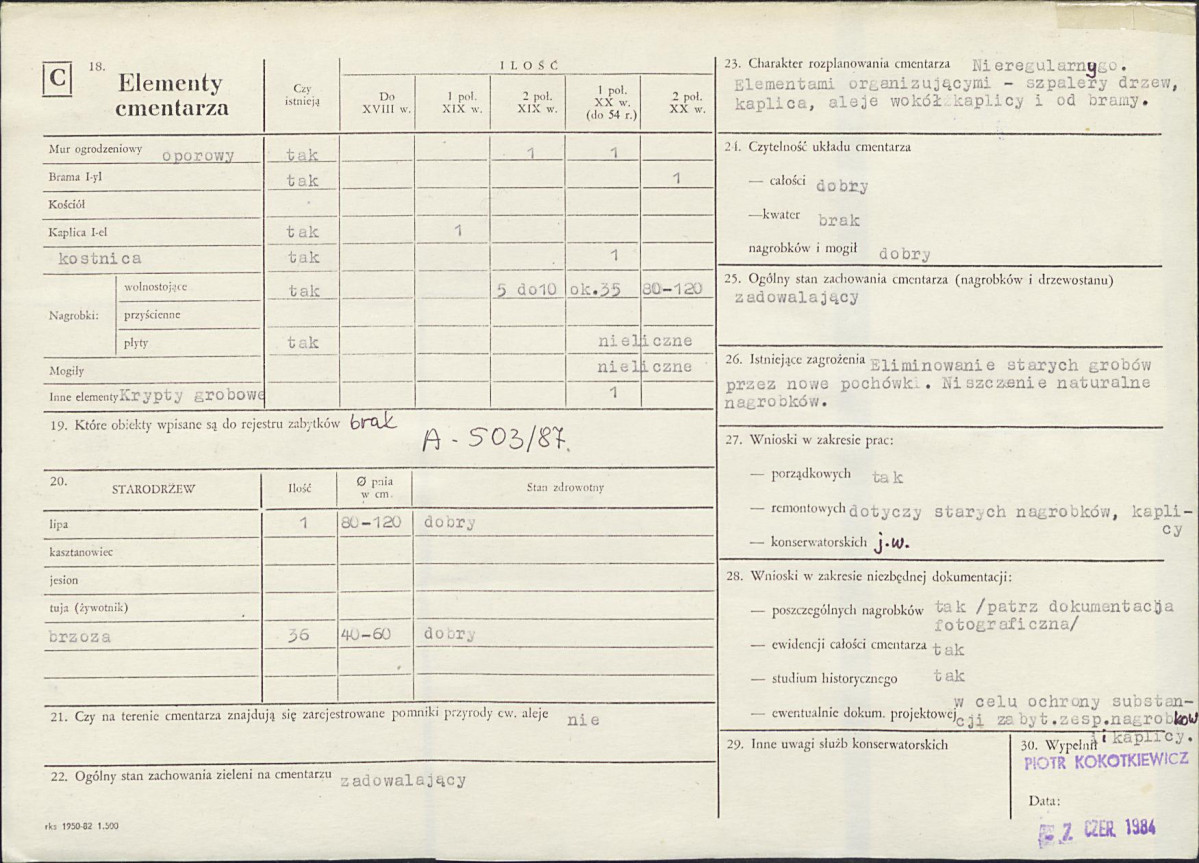 C
18. Elementy cmentarza
Czy istnieją
ILOŚĆ
Do XVIII w.
1 poł. XIX w.
2 poł. XIX w.
1 poł. XX w. (do 54 r.)
2 poł. XX w.
Mur ogrodzeniowy oporowy tak 1 1
Brama I-yl tak 1
Kościół
Kaplica I-el tak 1
kostnica tak 1
Nagrobki:
wolnostojące tak 5 do10 ok.35 80-120
przyścienne
płyty tak nieliczne
Mogiły nieliczne
Inne elementy Krypty grobowe 1
19. Które obiekty wpisane są do rejestru zabytków brak
A - 503/87.
20. STARODRZEW Ilość Ø pnia w cm. Stan zdrowotny
lipa 1 80-120 dobry
kasztanowiec
jesion
tuja (żywotnik)
brzoza 36 40-60 dobry
21. Czy na terenie cmentarza znajdują się zarejestrowane pomniki przyrody ew. aleje nie
22. Ogólny stan zachowania zieleni na cmentarzu zadowalający
rks 1950-82 1.500
23. Charakter rozplanowania cmentarza Nieregularnygo.
Elementami organizującymi - szpalery drzew,
kaplica, aleje wokół kaplicy i od bramy.
24. Czytelność układu cmentarza
— całości dobry
—kwater brak
nagrobków i mogił dobry
25. Ogólny stan zachowania cmentarza (nagrobków i drzewostanu)
zadowalający
26. Istniejące zagrożenia Eliminowanie starych grobów
przez nowe pochówki. Niszczenie naturalne
nagrobków.
27. Wnioski w zakresie prac:
— porządkowych tak
— remontowych dotyczy starych nagrobków, kapli-
cy
— konserwatorskich j.w.
28. Wnioski w zakresie niezbędnej dokumentacji:
— poszczególnych nagrobków tak /patrz dokumentacja
fotograficzna/
— ewidencji całości cmentarza tak
— studium historycznego tak
w celu ochrony substan-
— ewentualnie dokum. projektowej cji zabyt.zesp.nagrobków
i kaplicy.
29. Inne uwagi służb konserwatorskich
30. Wypełnił
PIOTR KOKOTKIEWICZ
Data:
7. CZER. 1984